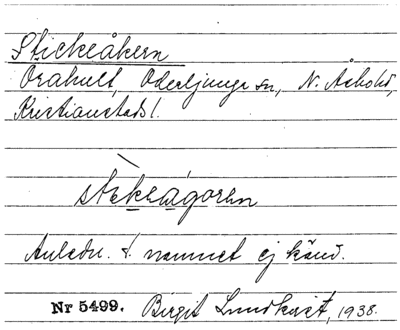 Stickeåkern
Örahult, Oderljunga sn, N. Åsbohd,
Kristianstads l.
Anledn. t. namnet ej känd.
Nr 5499. Birgit Lundkvist, 1938.